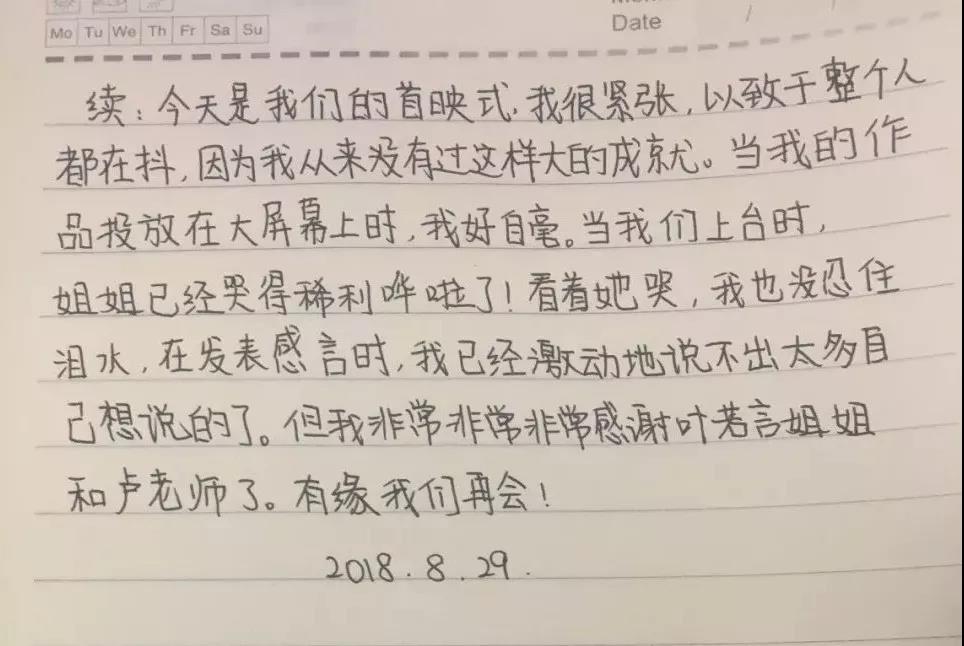 Mo Tu We Th Fr Sa Su
Date / /
续：今天是我们的首映式，我很紧张，以致于整个人
都在抖，因为我从来没有过这样大的成就。当我的作
品投放在大屏幕上时，我好自毫。当我们上台时，
姐姐已经哭得稀利哗啦了！看着她哭，我也没忍住
泪水，在发表感言时，我已经激动地说不出太多自
己想说的了。但我非常非常非常感谢叶若言姐姐
和卢老师了。有缘我们再会！
2018.8.29.